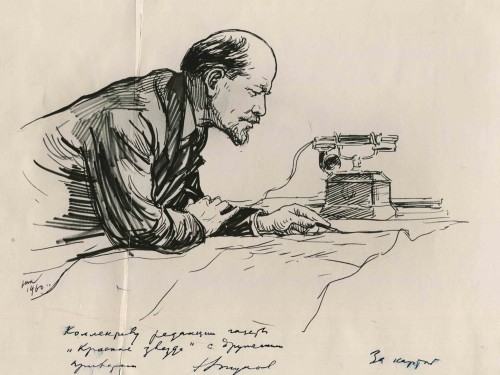 1960
Коллективу редакции газеты
"Красная звезда" с дружеским
приветом Н. Жуков
За картой